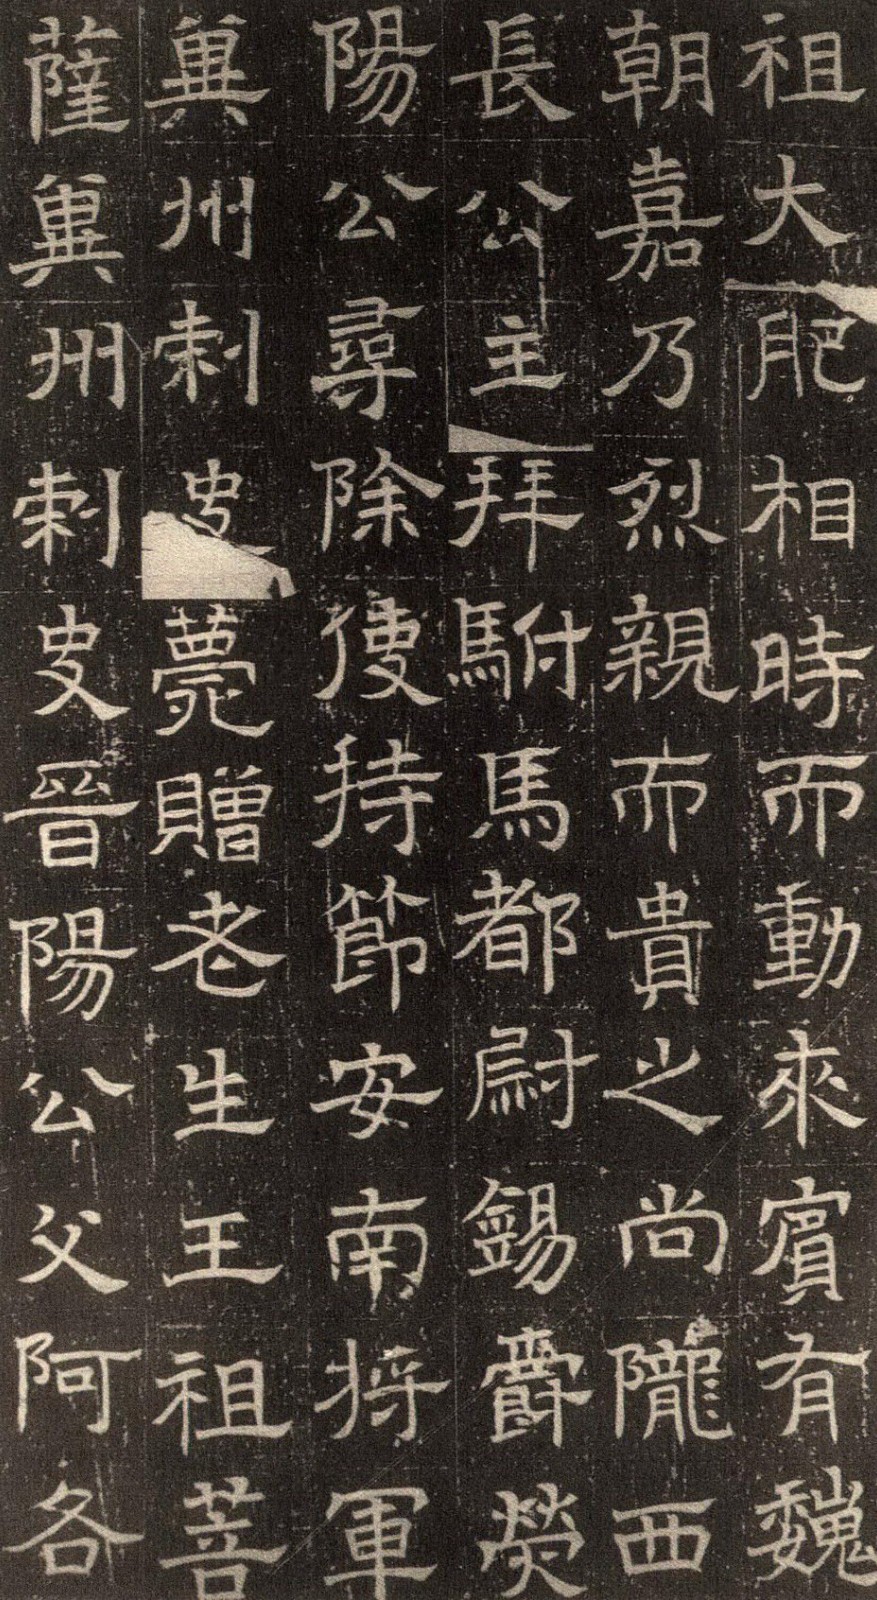 祖大肥相時而動來賓有魏
朝嘉乃烈親而貴之尚隴西
長公主拜駙馬都尉錫爵熒
陽公尋除使持節安南將軍
冀州刺史薨贈老生王祖菩
薩冀州刺史晉陽公父阿各